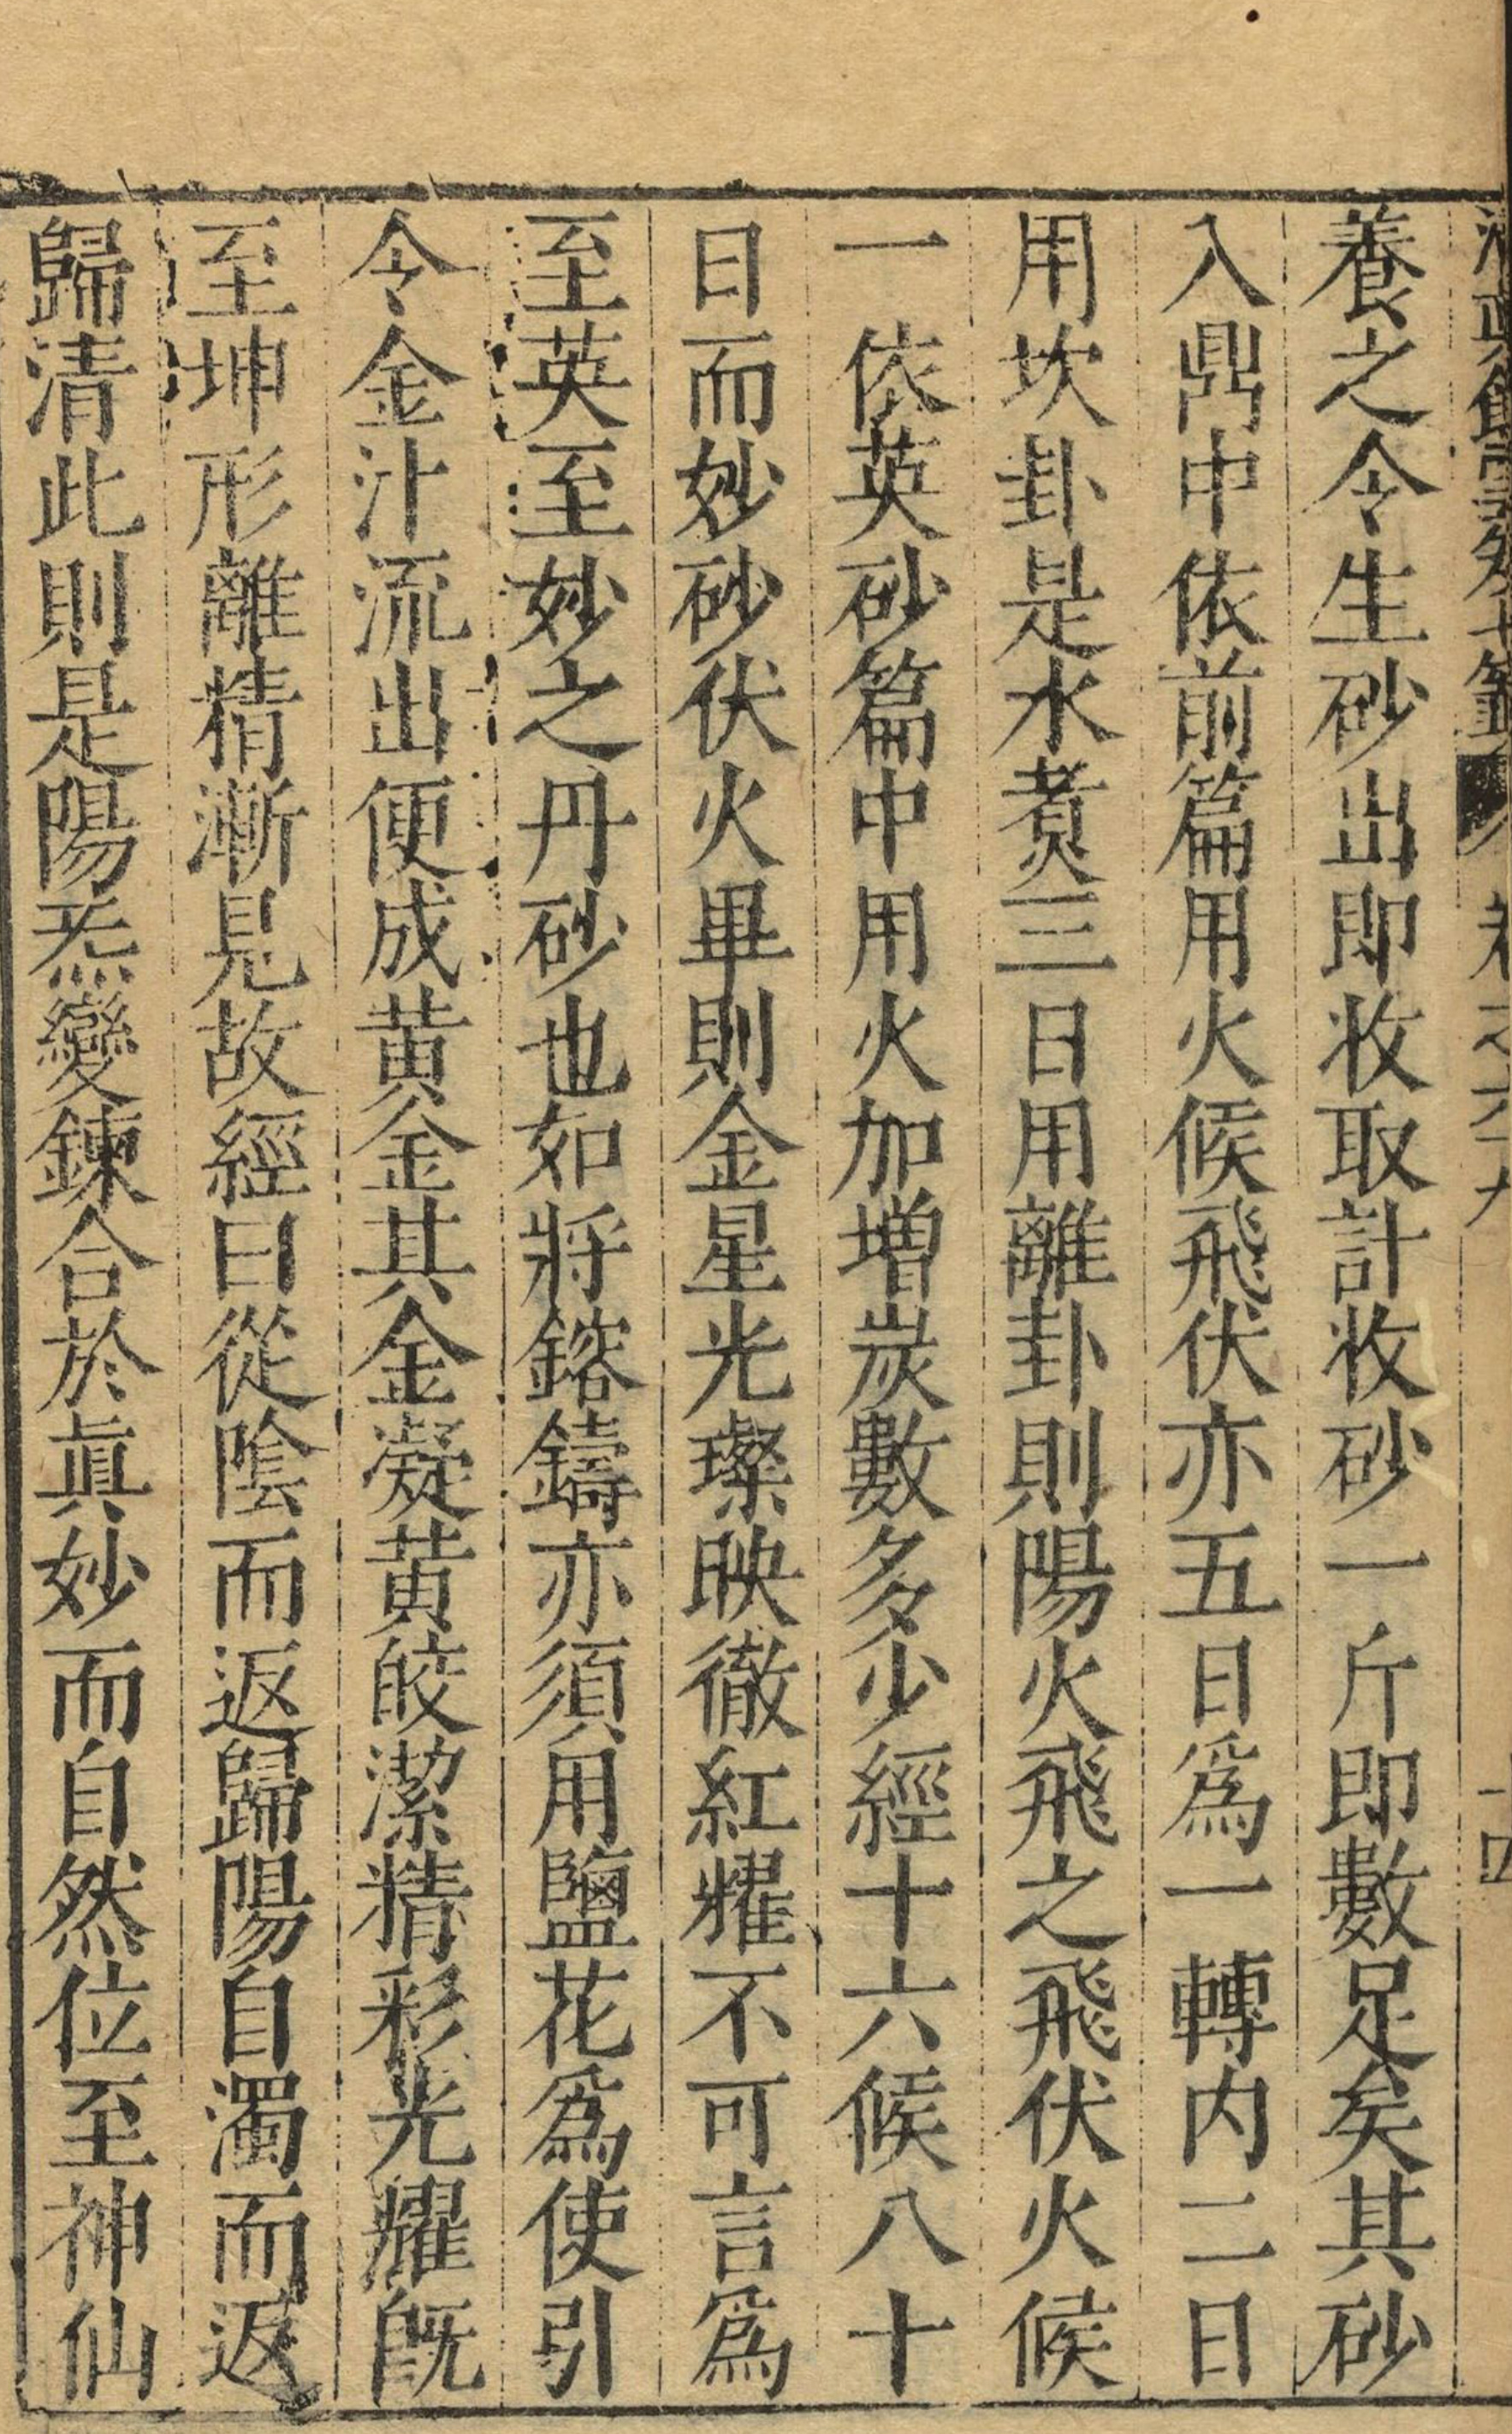 養之令生砂出即收取計收砂一斤即數足矣其砂
入鼎中依前篇用火候飛伏亦五日爲一轉内二日
用坎卦是水煮三日用離卦則陽火飛之飛伏火候
一依英砂篇中用火加増炭數多少經十六候八十
日而妙砂伏火畢則金星光璨映徹紅耀不可言爲
至英至妙之丹砂也如將鎔鑄亦須用鹽花爲使引
令金汁流出便成黄金其金凝黄皎潔精彩光耀旣
至坤形離精漸見故經曰從陰而返歸陽自濁而返
歸清此則是陽炁變鍊合於眞妙而自然位至神仙